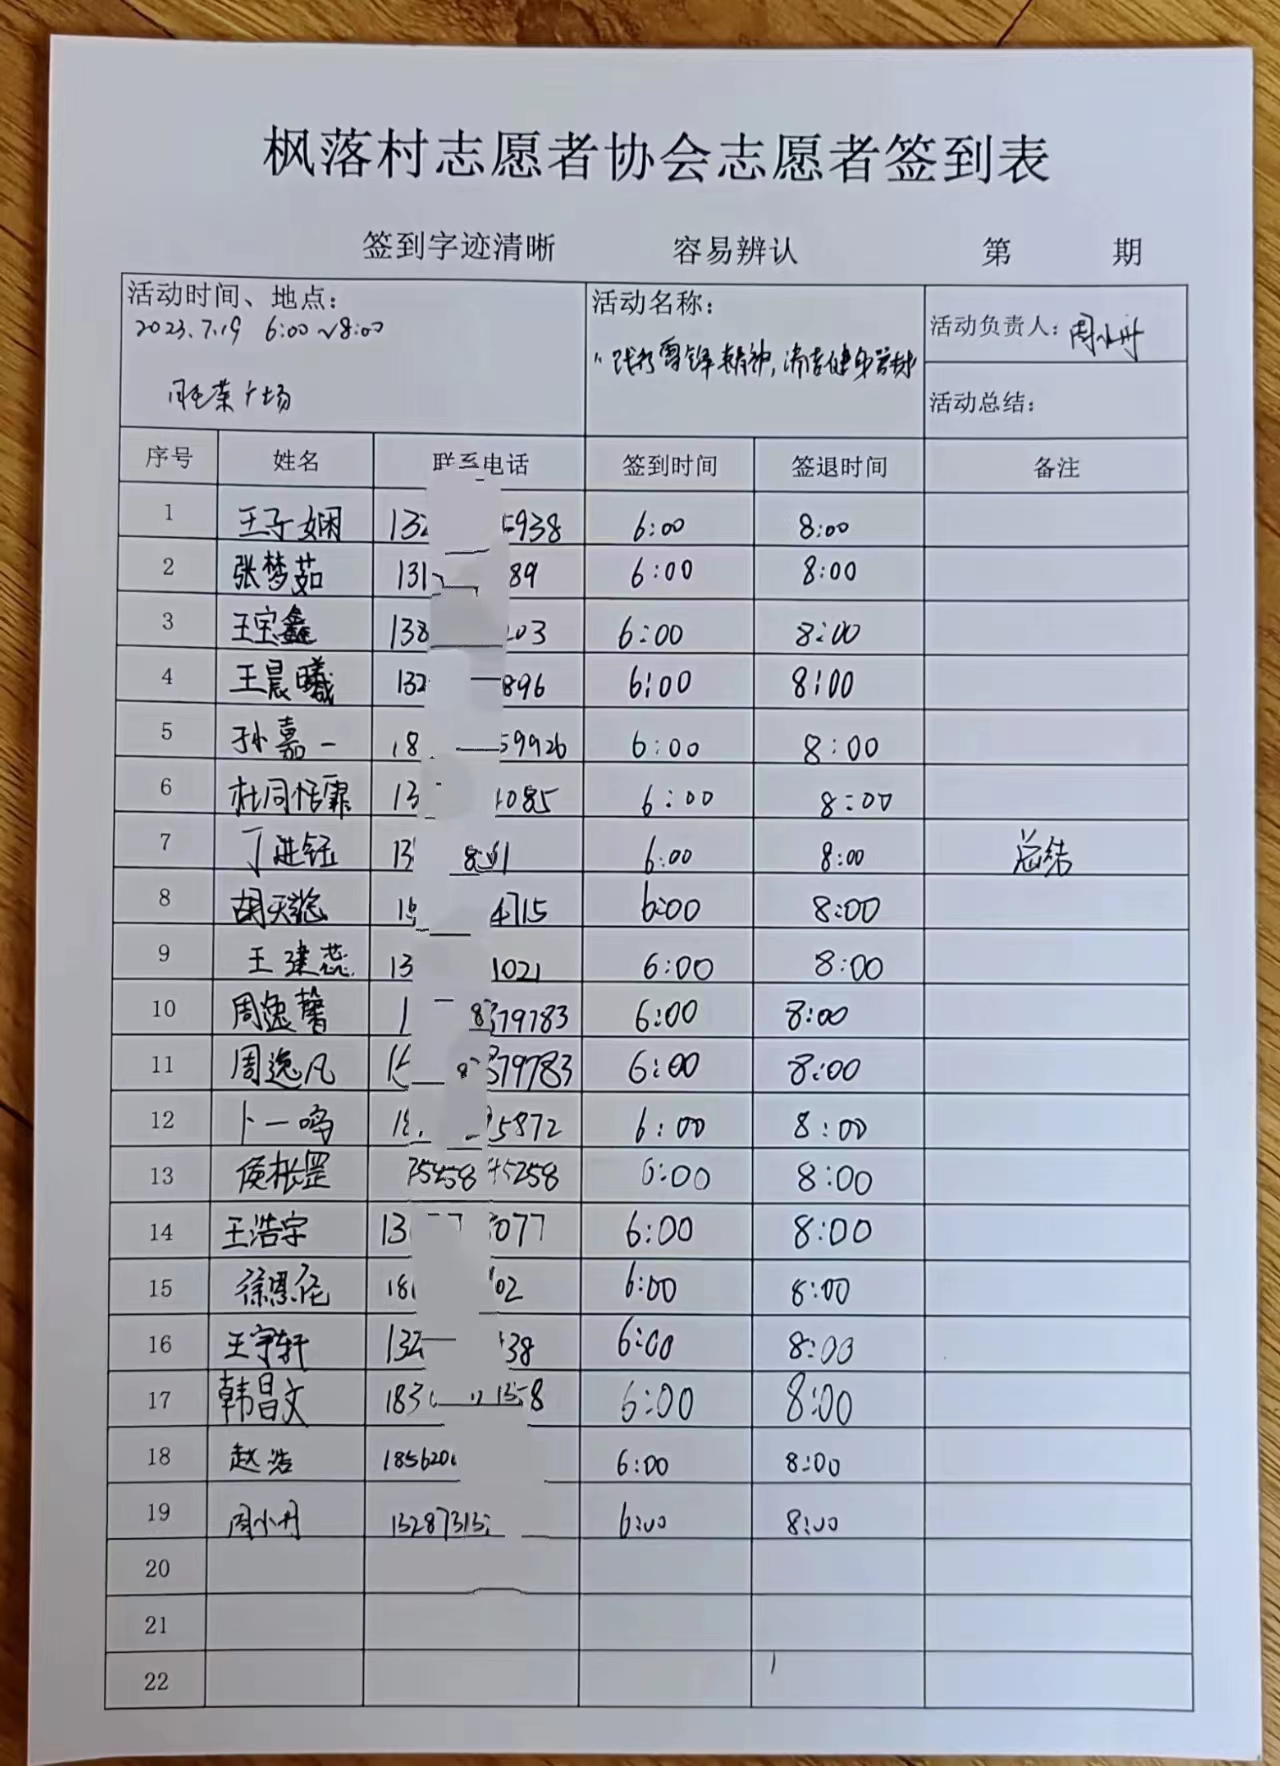 枫落村志愿者协会志愿者签到表
签到字迹清晰 容易辨认 第 期
活动时间、地点：
2023.7.19 6:00~8:00
广场
活动名称：
"践行雷锋精神，清洁健身器材
活动负责人：周小丹
活动总结：
序号 姓名 联系电话 签到时间 签退时间 备注
1 王子娴 132 5938 6:00 8:00
2 张梦茹 131 89 6:00 8:00
3 王宝鑫 138 03 6:00 8:00
4 王晨曦 132 896 6:00 8:00
5 孙嘉一 18 59926 6:00 8:00
6 杜同恬霏 13 085 6:00 8:00
7 丁进钰 13 6:00 8:00 总结
8 胡天懿 15 4715 6:00 8:00
9 王建蕊 13 1021 6:00 8:00
10 周逸馨 1 8379783 6:00 8:00
11 周逸凡 15 8379783 6:00 8:00
12 卜一鸣 18 5872 6:00 8:00
13 5258 6:00 8:00
14 王浩宇 13 077 6:00 8:00
15 徐恩佗 18 02 6:00 8:00
16 王宇轩 132 38 6:00 8:00
17 韩昌文 183 1358 6:00 8:00
18 赵浩 185620 6:00 8:00
19 周小丹 13287313 6:00 8:00
20
21
22